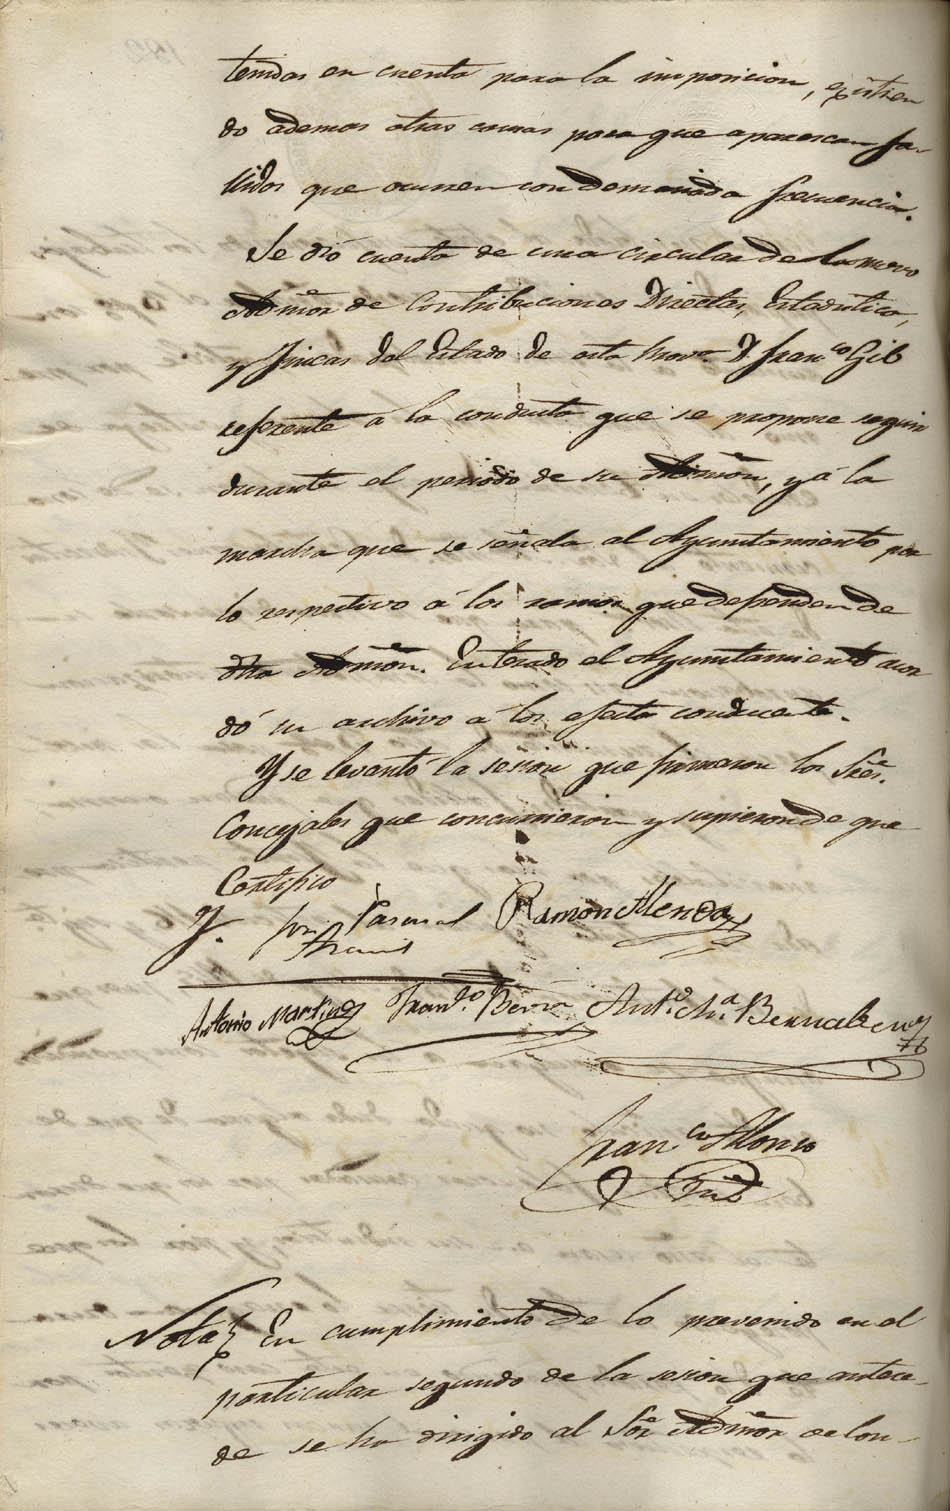 tenidas en cuenta para la imposicion, existien
do ademas otras causas para que aparescan fa-
llidos que ocurren con demasiada frecuencia.
Se dió cuenta de una circular del nuevo
Admõr de Contribuciones Directas, Estadistica,
y fincas del Estado de esta Prova. D. Franco. Gil
referente á la conducta que se propone seguir
durante el periodo de su Admõn, y á la
marcha que se señala al Ayuntamiento por
lo respectivo á los ramos que dependen de
dha Admõn. Enterado el Ayuntamiento acor
dó su archivo á los efectos conducentes.
Y se levantó la sesion que firmaron los Sres.
Concejales que concurrieron y supieron de que
Certifico
Y. Pascual Ramon Mendaz
Antonio Martinez Franco. Antº. Mª. Bernabeu
Franco Alonso
Srio
Nota En cumplimiento de lo prevenido en el
particular segundo de la sesion que antece-
de se ha dirigido al Sõr Admõr de Con-